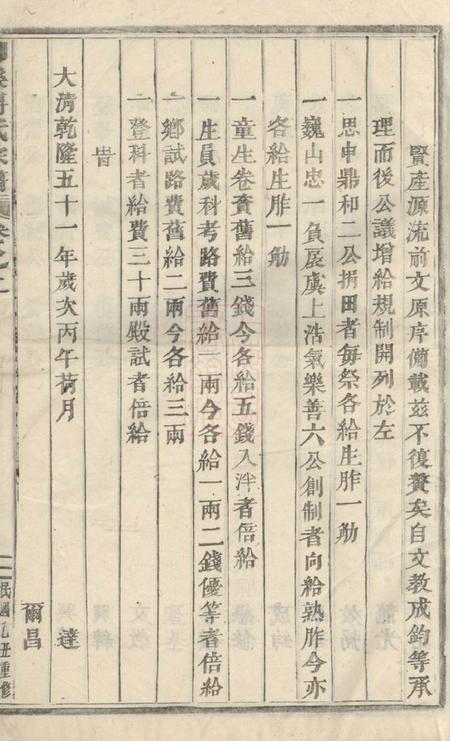 賢產源流前文原序備載茲不復贅矣自文教成鈞等承
理而後公議增給規制開列於左
一思申鼎和二公捐田者每祭各給生胙一觔
一巍山忠一負扆虞上浩氣樂善六公創制者向給熟胙今亦
各給生胙一觔
一童生卷資舊給三錢今各給五錢入泮者倍給
一生員歲科考路費舊給一兩今各給一兩二錢優等者倍給
一鄉試路費舊給二兩今各給三兩
一登科者給費三十兩殿試者倍給
旹
大清乾隆五十一年歲次丙午荷月
達
爾昌
氏宗譜
卷之二
民國己丑重修